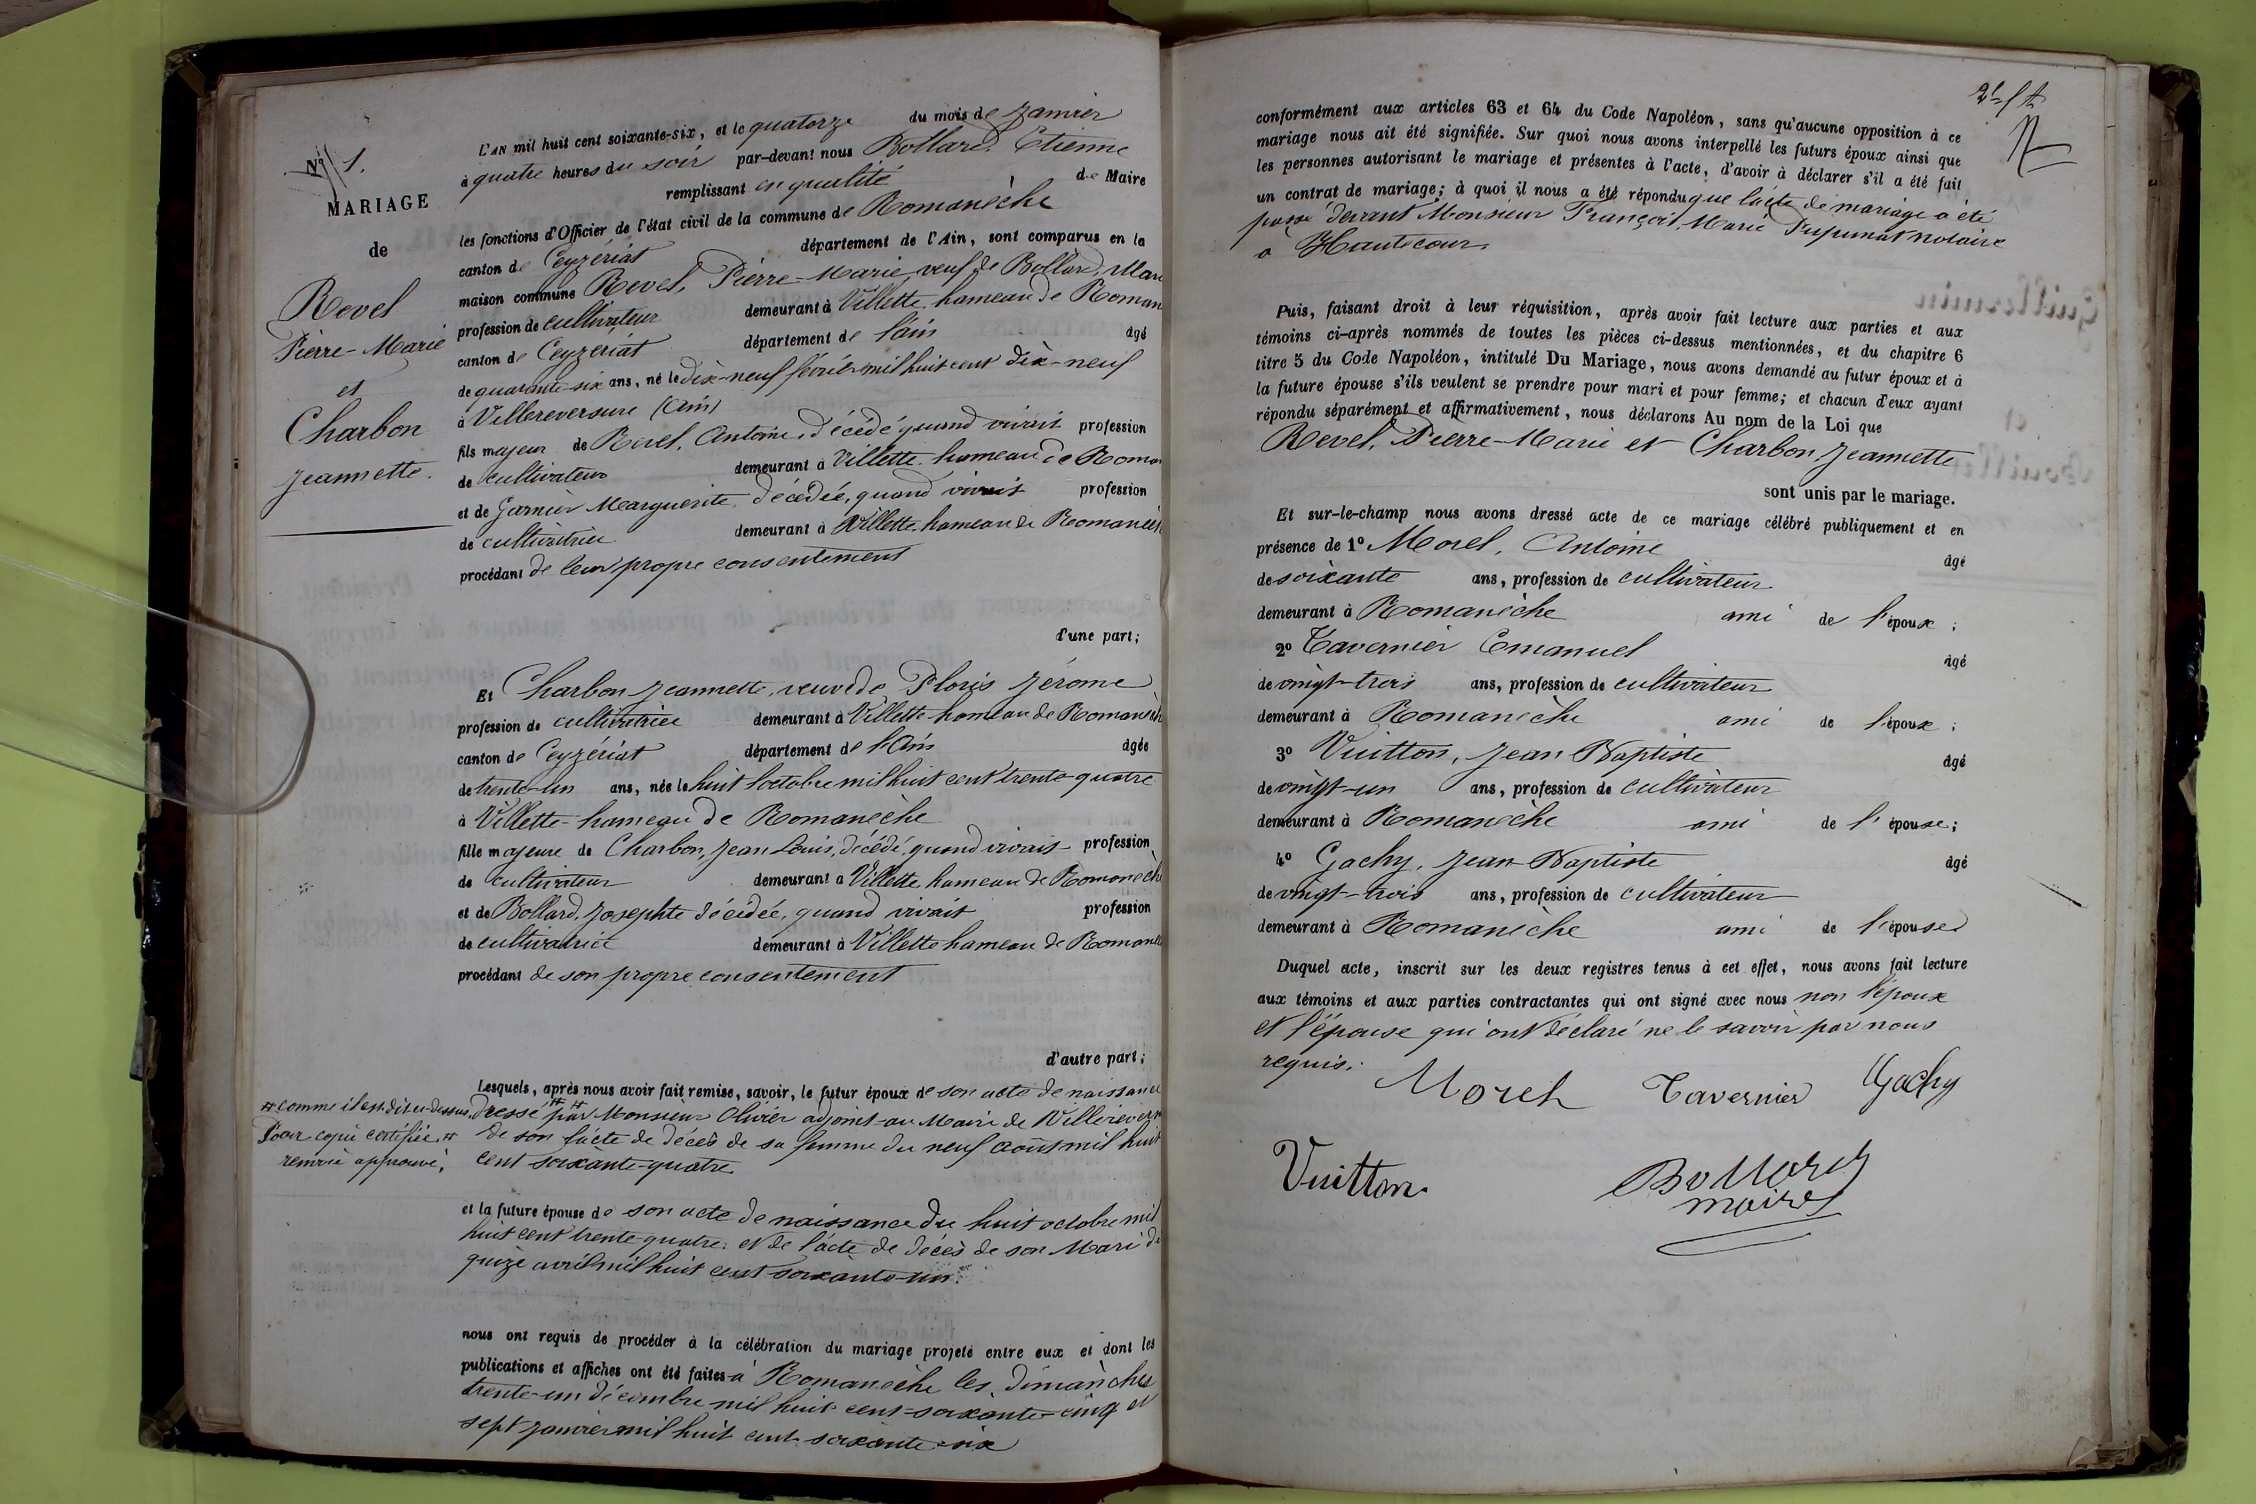 N° 1.
MARIAGE
de
Revel
Pierre-Marie
et
Charbon
Jeannette.
L'AN mil huit cent soixante-six, et le quatorze du mois de Janvier
à quatre heures du soir par-devant nous Bollard, Etienne
remplissant en qualité de Maire
les fonctions d'Officier de l'état civil de la commune de Romanèche
canton de Ceyzériat département de l'Ain, sont comparus en la
maison commune Revel, Pierre-Marie, veuf de Bollard, Mari
profession de cultivateur demeurant à Villette, hameau de Roman
canton de Ceyzériat département de l'ain âgé
de quarante-six ans, né le dix-neuf février mil huit cent dix-neuf
à Villereversure (Ain)
fils majeur de Revel, Antoine, décédé, quand vivait profession
de cultivateur demeurant à Villette, hameau de Roman
et de Garnier Marguerite, décédée, quand vivait profession
de cultivatrice demeurant à Villette, hameau de Romanèch
procédant de leur propre consentement
d'une part;
Et Charbon Jeannette, veuve de Floris Jérome
profession de cultivatrice demeurant à Villette hameau de Romanèch
canton de Ceyzériat département de l'Ain âgée
de trente-un ans, née le huit octobre mil huit cent trente-quatre
à Villette-hameau de Romanèche
fille majeure de Charbon, Jean Louis, décédé, quand vivais profession
de cultivateur demeurant à Villette, hameau de Romanèch
et de Bollard, Josephte décédée, quand vivait profession
de cultivatrice demeurant à Villette hameau de Romanè
procédant de son propre consentement
d'autre part;
Lesquels, après nous avoir fait remise, savoir, le futur époux de son acte de naissance
dressé ++ par Monsieur Olivier adjoint-au Maire de Villerevers
de son l'acte de décès de sa femme du neuf août mil huit
cent soixante-quatre
++ comme il est dit ci-dessus,
Pour copie certifiée ++
renvoi approuvé,
et la future épouse de son acte de naissance du huit octobre mil
huit cent trente-quatre, et de l'acte de décès de son Mari du
quize avril mil huit cent soixante-un.
nous ont requis de procéder à la célébration du mariage projeté entre eux et dont les
publications et affiches ont été faites à Romanèche les dimanches
trente-un décembre mil huit cent-soixante-cinq et
sept janvier mil huit cent soixante-six
conformément aux articles 63 et 64 du Code Napoléon, sans qu'aucune opposition à ce
mariage nous ait été signifiée. Sur quoi nous avons interpellé les futurs époux ainsi que
les personnes autorisant le mariage et présentes à l'acte, d'avoir à déclarer s'il a été fait
un contrat de mariage; à quoi il nous a été répondu que l'acte de mariage a été
passé devant Monsieur François, Marie Pupunat notaire
a Hautecour.
Puis, faisant droit à leur réquisition, après avoir fait lecture aux parties et aux
témoins ci-après nommés de toutes les pièces ci-dessus mentionnées, et du chapitre 6
titre 5 du Code Napoléon, intitulé Du Mariage, nous avons demandé au futur époux et à
la future épouse s'ils veulent se prendre pour mari et pour femme; et chacun d'eux ayant
répondu séparément et affirmativement, nous déclarons Au nom de la Loi que
Revel, Pierre-Marie et Charbon, Jeannette
sont unis par le mariage.
Et sur-le-champ nous avons dressé acte de ce mariage célébré publiquement et en
présence de 1° Morel, Antoine âgé
de soixante ans, profession de cultivateur
demeurant à Romanèche ami de l'époux;
2° Tavernier Emanuel âgé
de vingt-trois ans, profession de cultivateur
demeurant à Romanèche ami de l'époux;
3° Vuitton, Jean Baptiste âgé
de vingt-un ans, profession de cultivateur
demeurant à Romanèche ami de l'épouse;
4° Gachy, Jean-Baptiste âgé
de vingt-trois ans, profession de cultivateur
demeurant à Romanèche ami de l'épouse
Duquel acte, inscrit sur les deux registres tenus à cet effet, nous avons fait lecture
aux témoins et aux parties contractantes qui ont signé avec nous non l'époux
et l'épouse qui ont déclaré ne le savoir par nous
requis.
Morel Tavernier Gachy
Vuitton. Bollard
maire